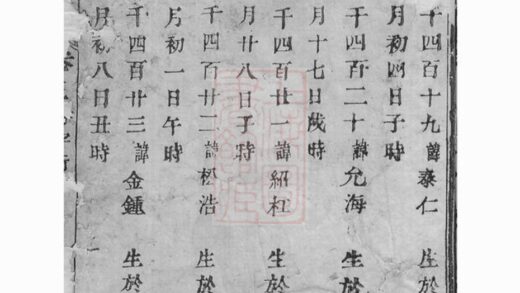 千四百十九諱泰仁 生於
月初四日子時
千四百二十諱允海 生於
月十七日戌時
千四百廿一諱紹杠 生於
月廿八日子時
千四百廿二諱松浩 生於
月初一日午時
千四百廿三諱金鍾 生於
月初八日丑時